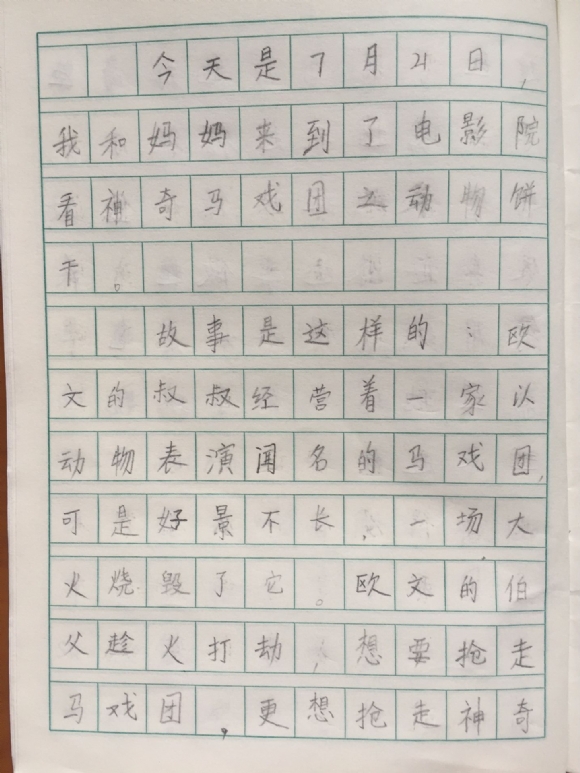 今天是7月21日,
我和妈妈来到了电影院
看神奇马戏团之动物饼
干。
故事是这样的：欧
文的叔叔经营着一家以
动物表演闻名的马戏团,
可是好景不长,一场大
火烧毁了它。欧文的伯
父趁火打劫,想要抢走
马戏团,更想抢走神奇